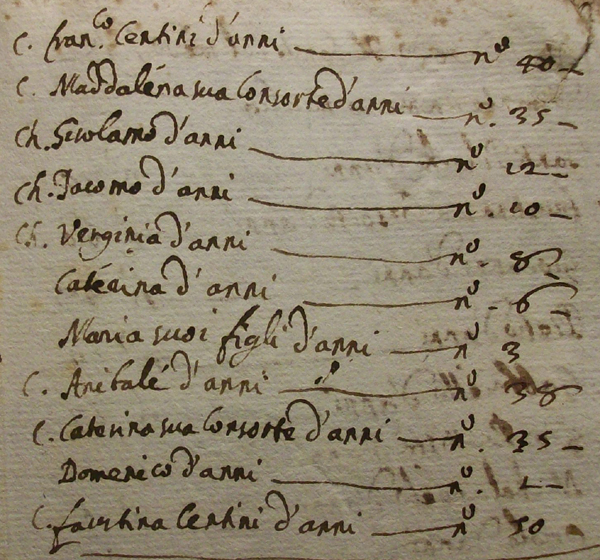 C. Franco. Centini d'anni nº 40
C. Maddalena sua Consorte d'anni nº. 35
Ch. Girolamo d'anni nº 12
Ch. Jacomo d'anni nº 10
Ch. Verginia d'anni nº. 8
Caterina d'anni nº 6
Maria suoi figli d'anni nº 3
C. Anibale d'anni nº. 38
C. Caterina sua Consorte d'anni nº. 35
Domenico d'anni nº.
C. Faustina Centini d'anni nº 50